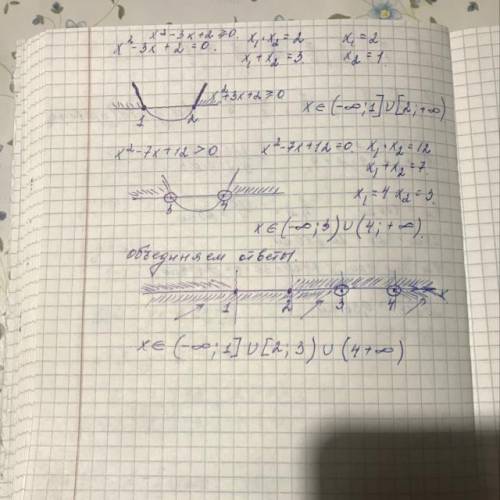 x²-3x+2≥0.
x²-3x+2=0. x₁·x₂=2 x₁=2
x₁+x₂=3 x₂=1.
x²+3x+2≥0
1 2
x∈(-∞;1]∪[2;+∞)
x²-7x+12>0 x²-7x+12=0. x₁·x₂=12
x₁+x₂=7
x₁=4 x₂=3.
3 4
x∈(-∞;3)∪(4;+∞).
объединяем ответы.
1 2 3 4 x
x∈(-∞;1]∪[2;3)∪(4+∞)